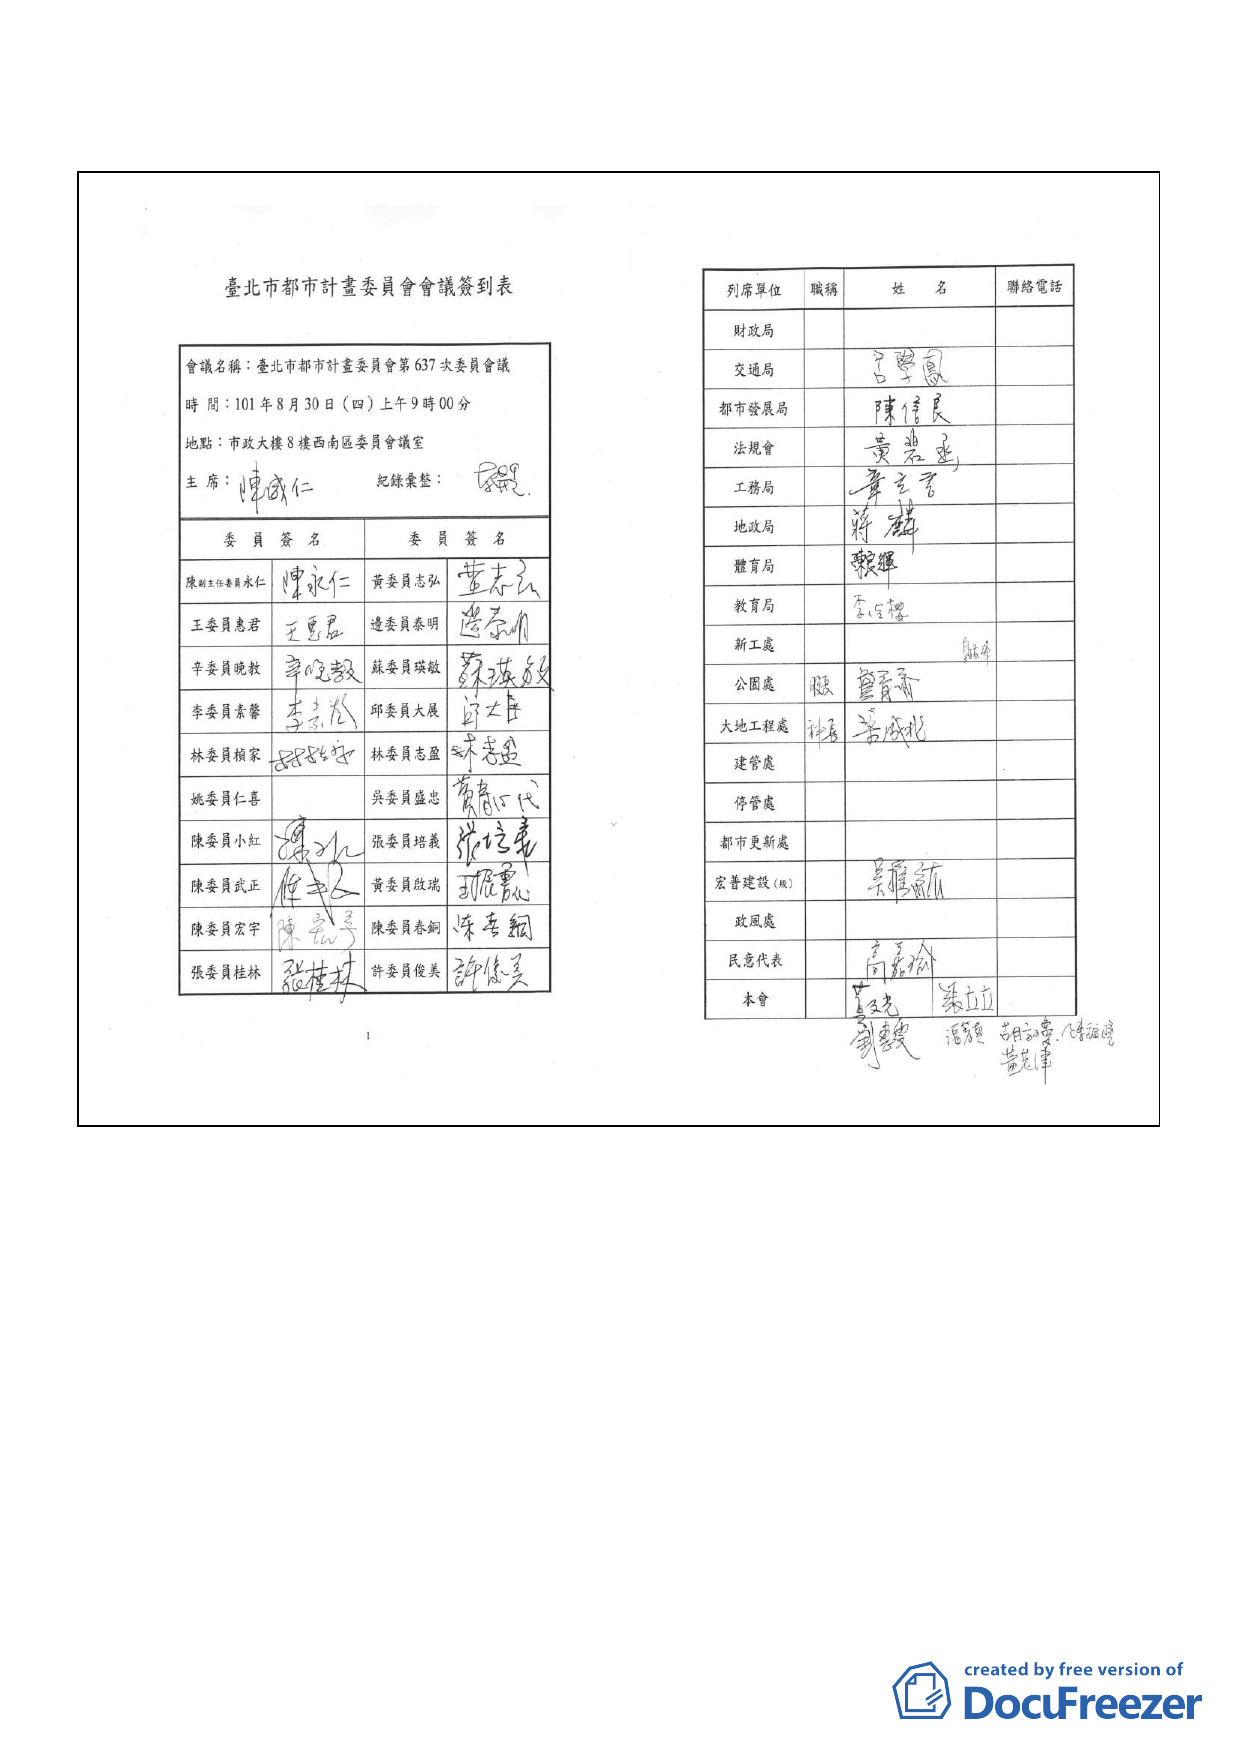 臺北市都市計畫委員會會議簽到表
會議名稱：臺北市都市計畫委員會第 637 次委員會議
時 間：101 年 8 月 30 日（四）上午 9 時 00 分
地點：市政大樓 8 樓西南區委員會議室
主 席：陳威仁 紀錄彙整：
委 員 簽 名 委 員 簽 名
陳副主任委員永仁 陳永仁 黃委員志弘 黃志弘
王委員惠君 王惠君 邊委員泰明 邊泰明
辛委員晚教 辛晚教 蘇委員瑛敏 蘇瑛敏
李委員素馨 邱委員大展 邱大展
林委員楨家 林楨家 林委員志盈 林志盈
姚委員仁喜 吳委員盛忠
陳委員小紅 陳小紅 張委員培義 張培義
陳委員武正 陳武正 黃委員啟瑞
陳委員宏宇 陳宏宇 陳委員春銅 陳春銅
張委員桂林 張桂林 許委員俊美 許俊美
1
列席單位 職稱 姓 名 聯絡電話
財政局
交通局
都市發展局 陳信良
法規會
工務局 章立言
地政局 蔣麟
體育局
教育局
新工處
公園處 股長
大地工程處 科長
建管處
停管處
都市更新處
宏普建設（股）
政風處
民意代表 高嘉瑜
本會
created by free version of
DocuFreezer